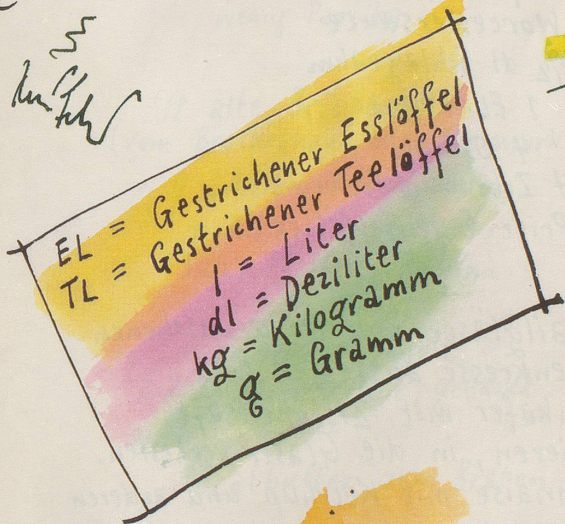 EL = Gestrichener Esslöffel
TL = Gestrichener Teelöffel
l = Liter
dl = Deziliter
kg = Kilogramm
g = Gramm